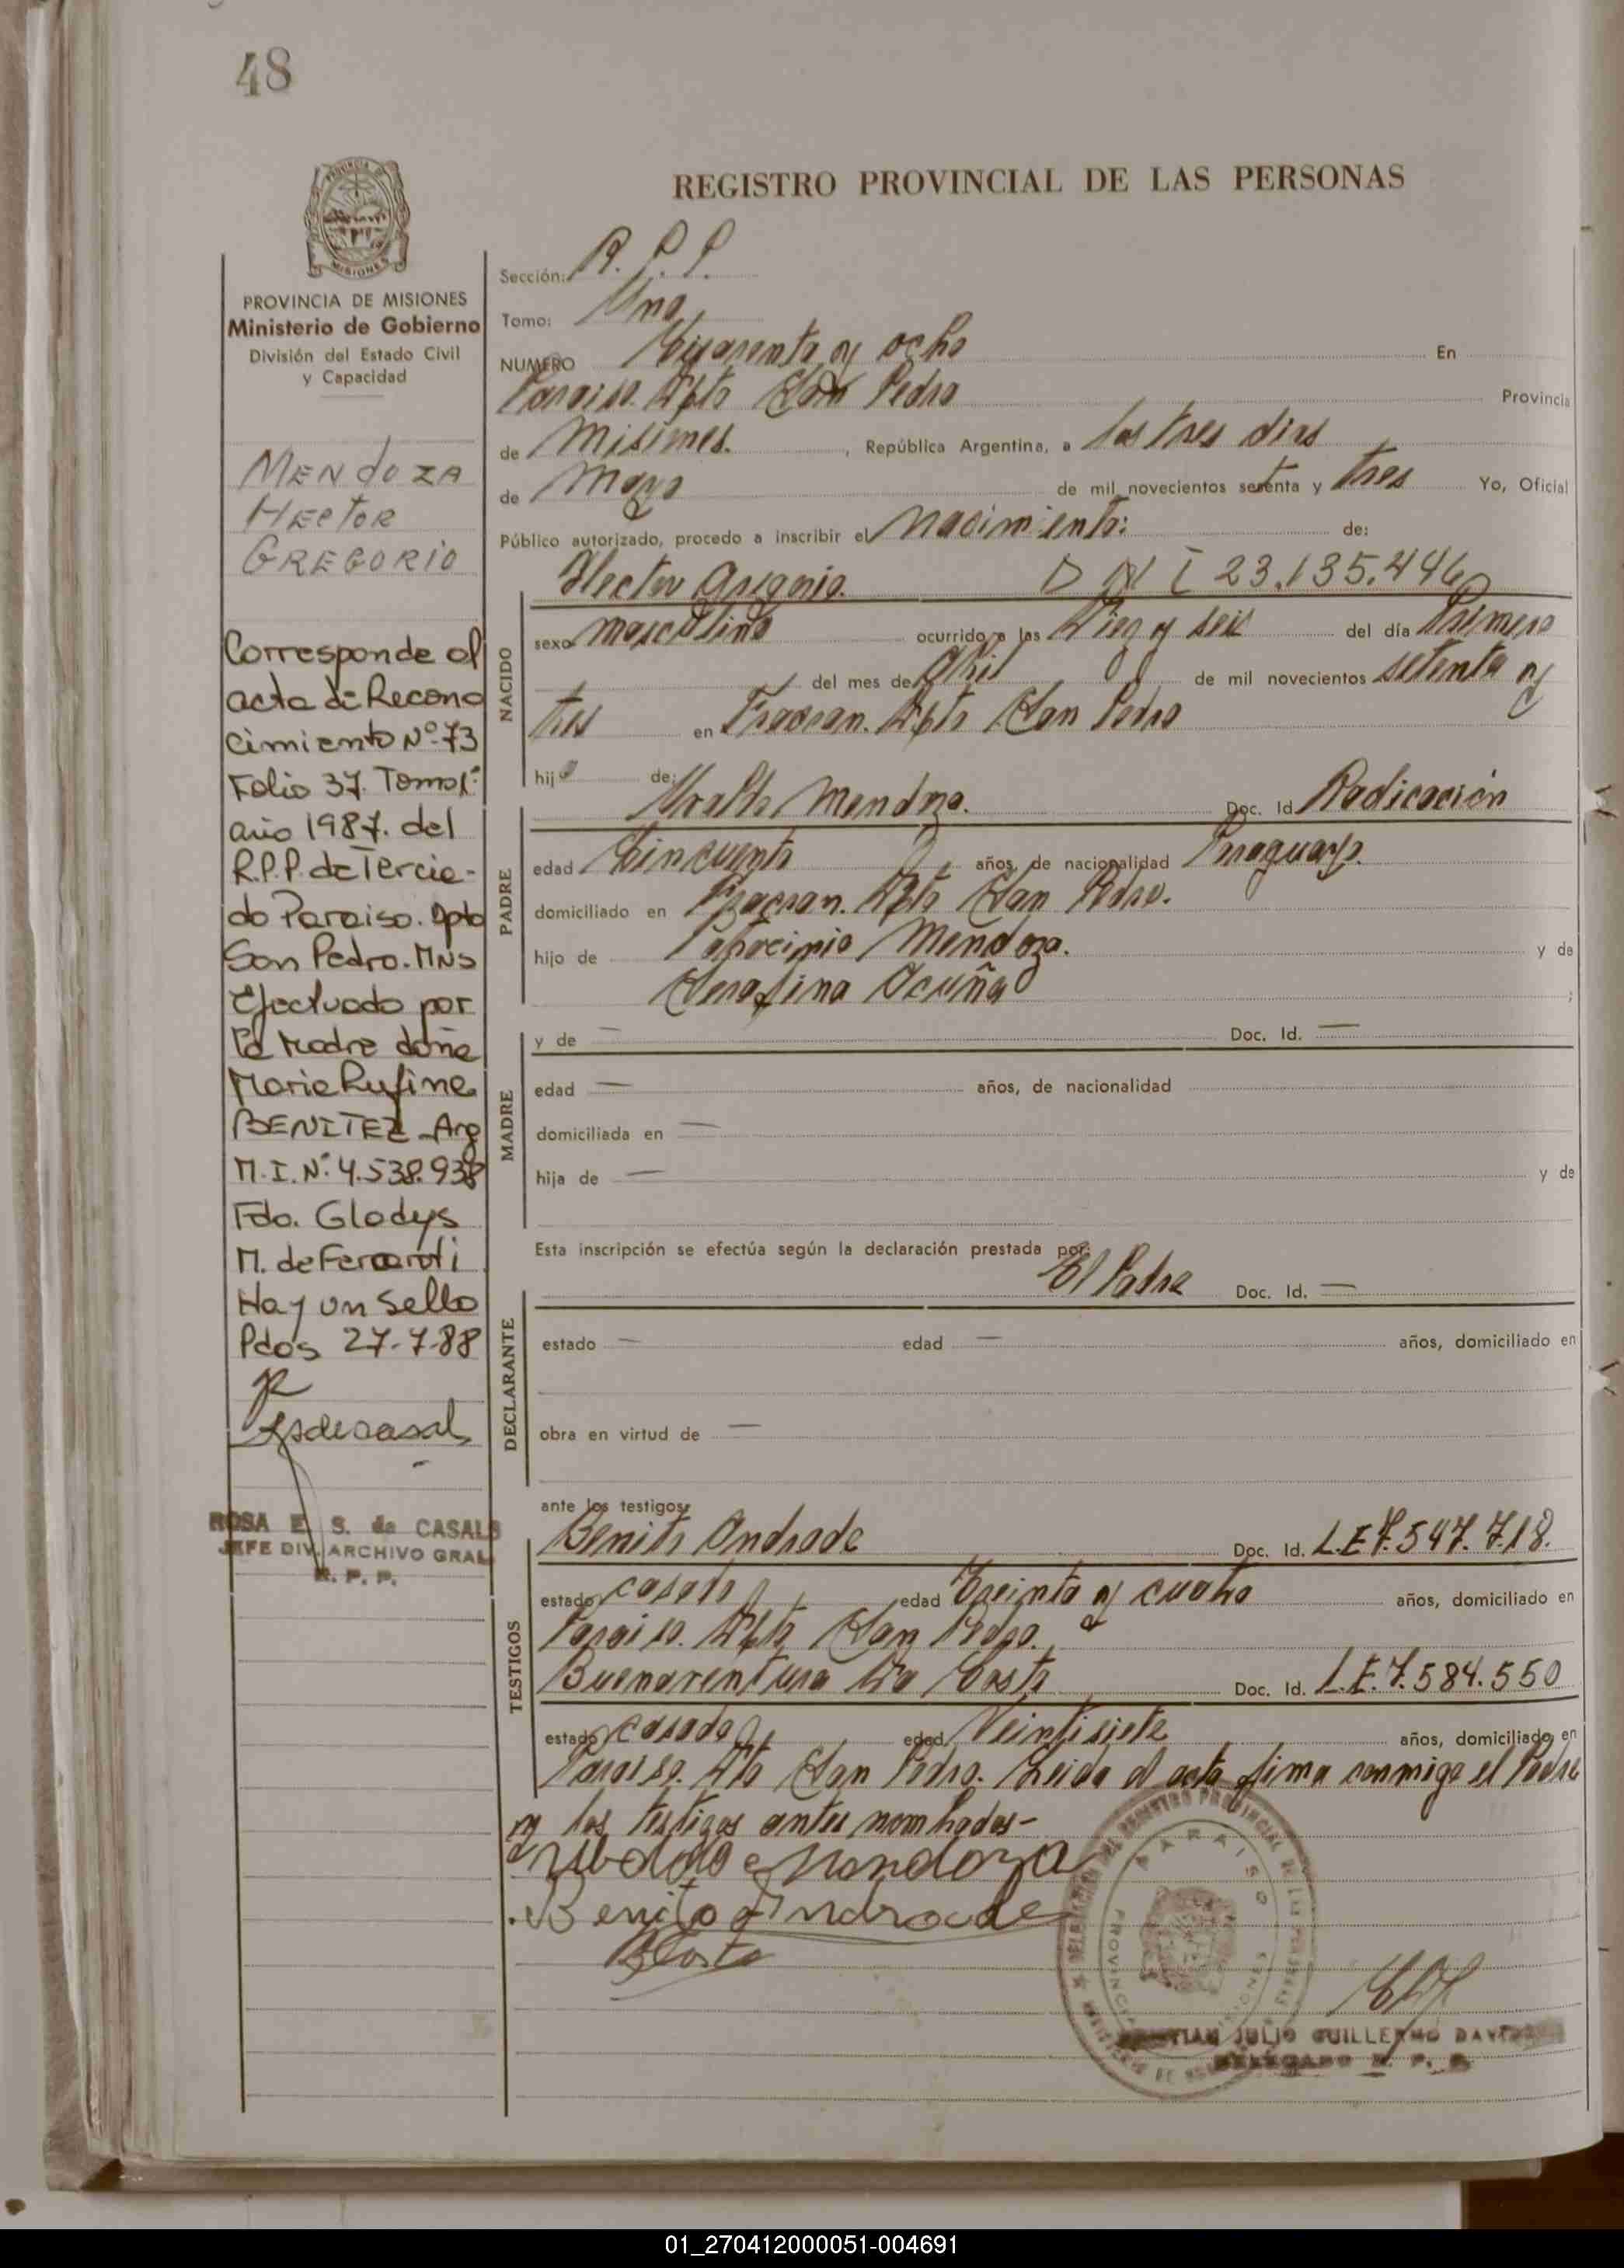 48
REGISTRO PROVINCIAL DE LAS PERSONAS
PROVINCIA DE MISIONES
MISIONES
PROVINCIA DE MISIONES
Ministerio de Gobierno
División del Estado Civil
y Capacidad
MENDOZA
HECTOR
GREGORIO
Corresponde al
acta de Recono
cimiento Nº 73
Folio 37. Tomo 1º
año 1987. del
R.P.P. de Tercia-
do Paraiso. Dpto
San Pedro. MNS
Efectuado por
la Madre doña
Maria Rufina
BENITEZ - Arg
M.I. Nº: 4.538.938
Fdo. Gladys
M. de
Hay un sello
Pdas 27-7-88
ROSA E. S. de CASALS
JEFE DIV. ARCHIVO GRAL.
R. P. P.
Sección: R. P. P.
Tomo: Uno
NUMERO Cuarenta y ocho En
Paraiso. Dpto San Pedro Provincia
de Misiones. , República Argentina, a los tres dias
de Mayo de mil novecientos setenta y tres Yo, Oficial
Público autorizado, procedo a inscribir el Nacimiento: de:
Hector Gregorio. DNI 23.135.446
NACIDO
sexo masculino ocurrido a las Diez y seis del día Primero
del mes de Abril de mil novecientos setenta y
tres en Fracran. Dpto San Pedro
hijo de:
PADRE
Ubaldo Mendoza. Doc. Id. Radicación
edad Cincuenta años, de nacionalidad Paraguayo.
domiciliado en Fracran. Dpto San Pedro.
hijo de Patrocinio Mendoza. y de
Serafina Acuña ;
MADRE
y de — Doc. Id. —
edad — años, de nacionalidad
domiciliada en —
hija de — y de
Esta inscripción se efectúa según la declaración prestada por:
El Padre Doc. Id. —
DECLARANTE
estado — edad — años, domiciliado en
obra en virtud de —
ante los testigos:
TESTIGOS
Benito Andrade Doc. Id. L.E 7.547.718.
estado casado edad Treinta y cuatro años, domiciliado en
Paraiso. Dpto San Pedro.
Buenaventura Da Costa Doc. Id. L.E. 7.584.550
estado casado edad Veintisiete años, domiciliado en
Paraiso. Dto San Pedro. Leida el acta firma conmigo el Padre
y los testigos antes nombrados-
Ubaldo Mendoza
Benito Andrade
B Costa
DELEGACION DEL REGISTRO PROVINCIAL DE LAS PERSONAS
PARAISO
PROVINCIA MISIONES
CRISTIAN JULIO GUILLERMO
DELEGADO R. P. P.
01_270412000051-004691